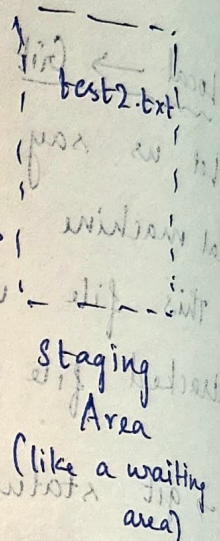 test2.txt
staging
Area
(like a waiting
area)